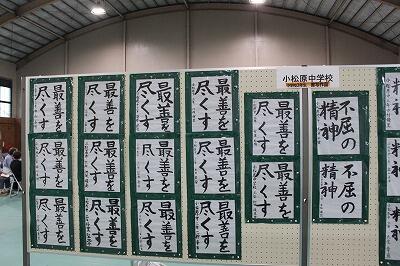 小松原中学校
精神
精神
精神
不屈の
精神
不屈の
精神
最善を
尽くす
最善を
尽くす
最善を
尽くす
最善を
尽くす
最善を
尽くす
最善を
尽くす
最善を
尽くす
最善を
尽くす
最善を
尽くす
最善を
尽くす
最善を
尽くす
最善を
尽くす
最善を
尽くす
最善を
尽くす